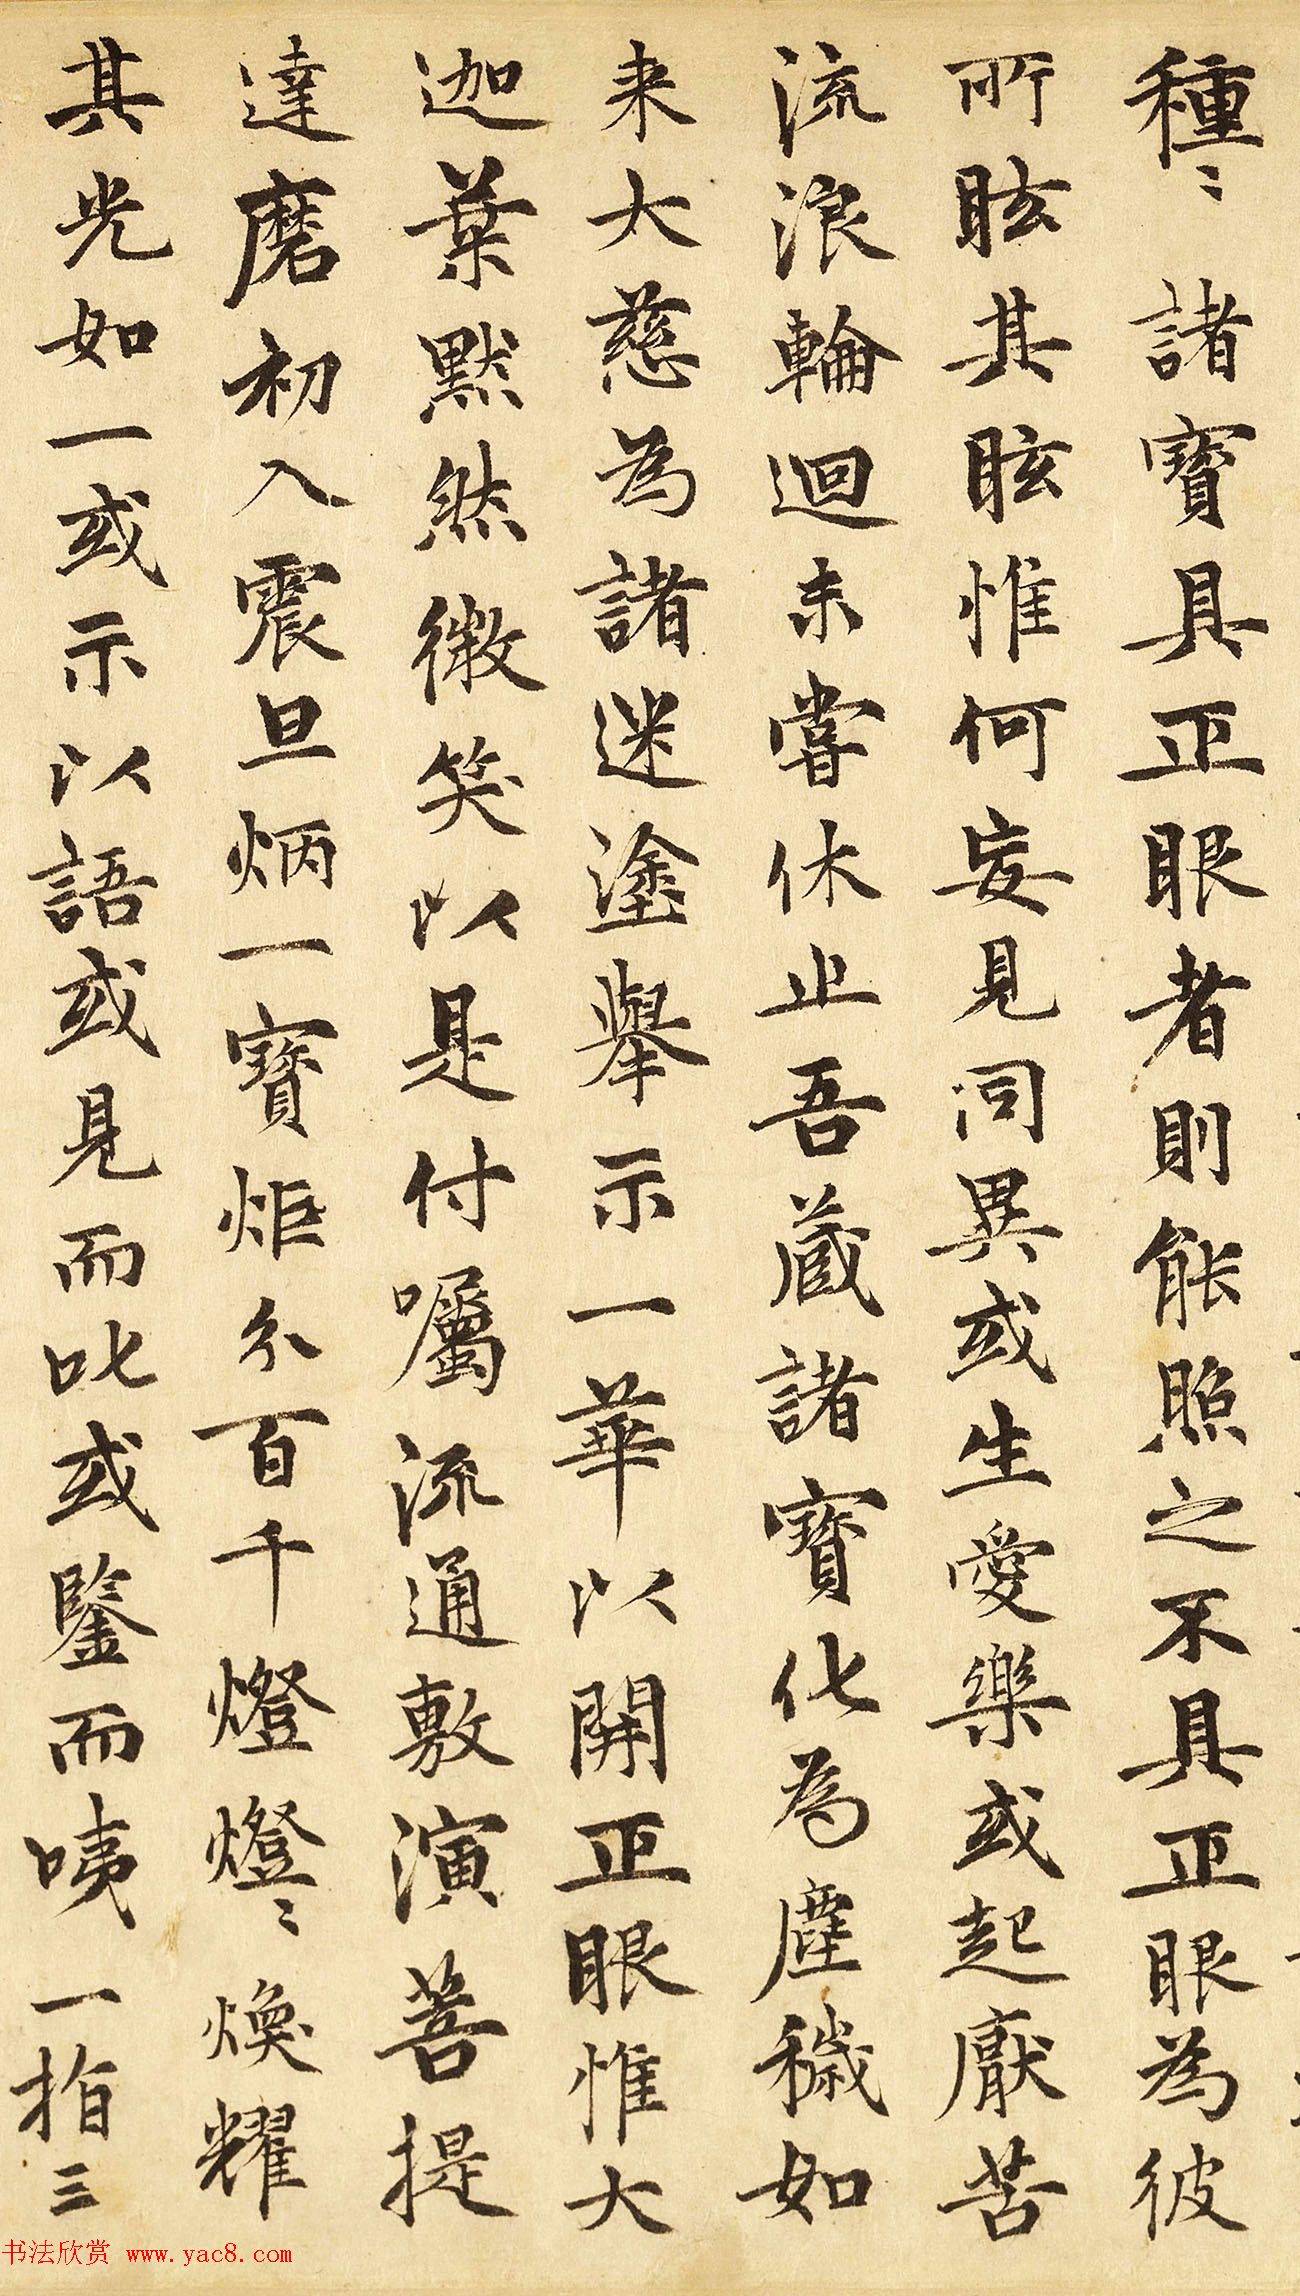 種〻諸寶具正眼者則能照之不具正眼為彼
所眩其眩惟何妄見同異或生愛樂或起厭苦
流浪輪迴未嘗休止吾藏諸寶化為塵穢如
来大慈為諸迷塗舉示一華以開正眼惟大
迦葉默然微笑以是付囑流通敷演菩提
達磨初入震旦炳一寶炬分百千燈燈〻煥耀
其光如一或示以語或見而叱或鑒而咦一指三
书法欣赏 www.yac8.com